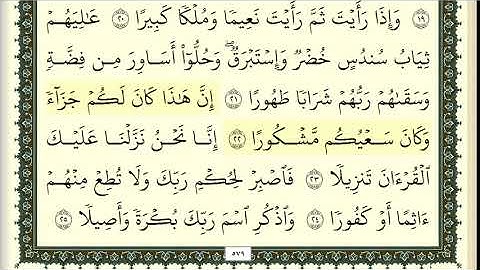 ١٩ وَإِذَا رَأَيْتَ ثَمَّ رَأَيْتَ نَعِيمًا وَمُلْكًا كَبِيرًا ٢٠ عَٰلِيَهُمْ
ثِيَابُ سُندُسٍ خُضْرٌ وَإِسْتَبْرَقٌ ۖ وَحُلُّوٓا۟ أَسَاوِرَ مِن فِضَّةٍ
وَسَقَىٰهُمْ رَبُّهُمْ شَرَابًا طَهُورًا ٢١ إِنَّ هَٰذَا كَانَ لَكُمْ جَزَآءً
وَكَانَ سَعْيُكُم مَّشْكُورًا ٢٢ إِنَّا نَحْنُ نَزَّلْنَا عَلَيْكَ
ٱلْقُرْءَانَ تَنزِيلًا ٢٣ فَٱصْبِرْ لِحُكْمِ رَبِّكَ وَلَا تُطِعْ مِنْهُمْ
ءَاثِمًا أَوْ كَفُورًا ٢٤ وَٱذْكُرِ ٱسْمَ رَبِّكَ بُكْرَةً وَأَصِيلًا ٢٥
٥٧٩